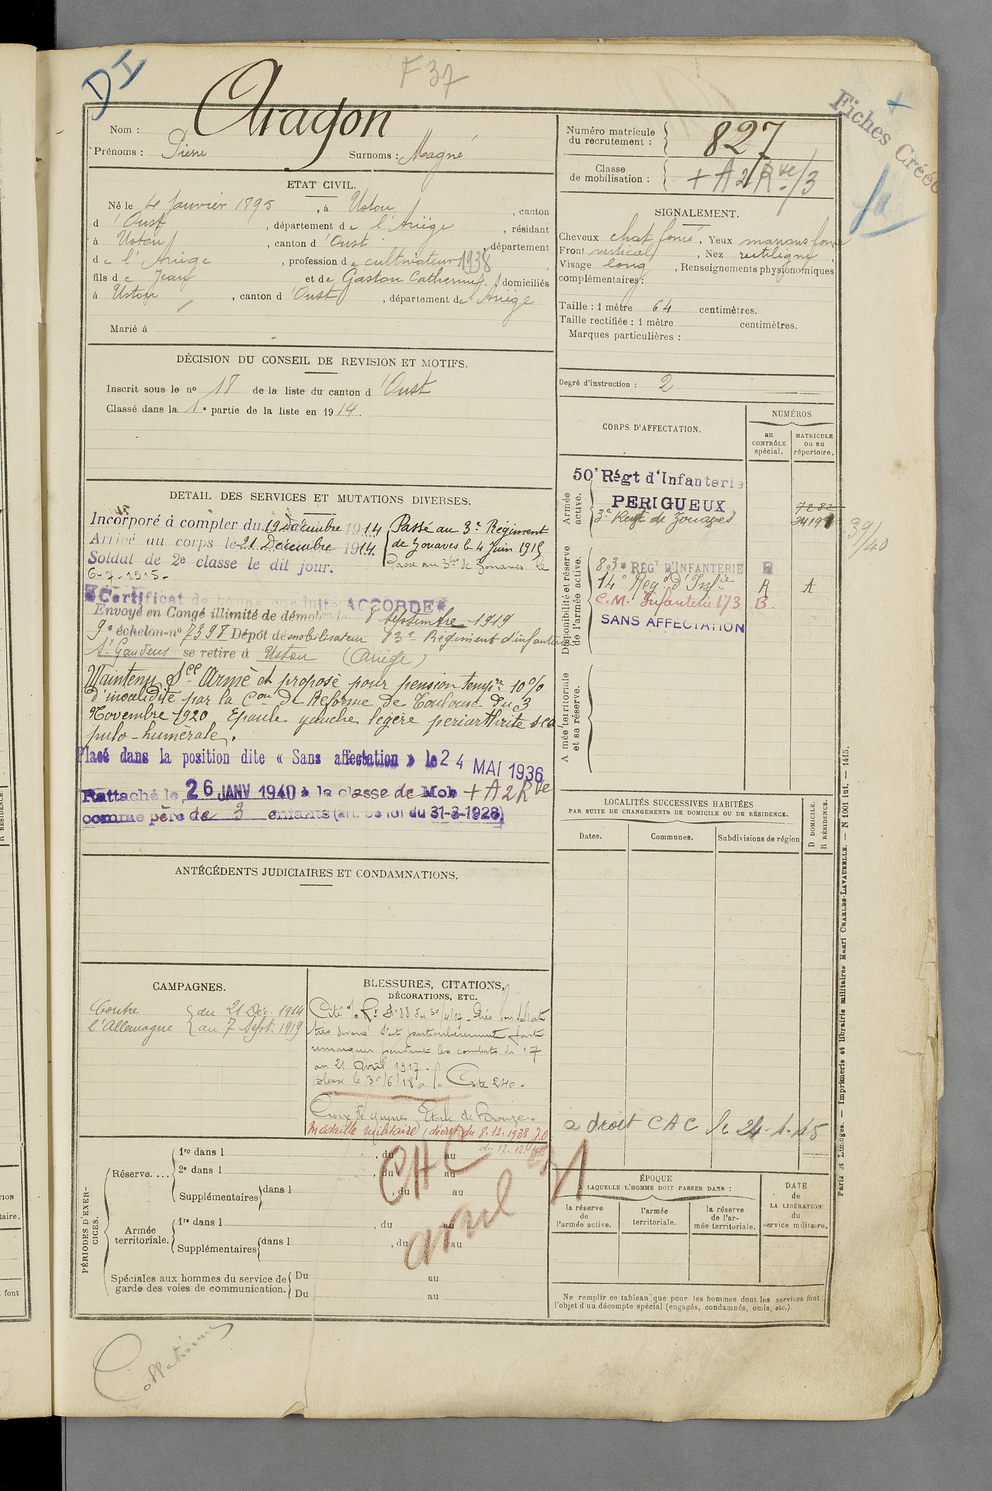 DI
F 37
Fiches Créées
Nom : Aragon
Prénoms : Pierre Surnoms : Magné
Numéro matricule du recrutement : 827
Classe de mobilisation : + A 2 Rve/3
ETAT CIVIL.
Né le 4 Janvier 1895, à Ustou, canton
d'Oust, département de l'Ariège, résidant
à Ustou, canton d'Oust, département
de l'Ariège, profession de cultivateur 1938
fils de Jean et de Gaston Catherine, domiciliés
à Ustou, canton d'Oust, département de Ariège
Marié à
SIGNALEMENT.
Cheveux chat. foncé, Yeux marrons foncé
Front vertical, Nez rectiligne
Visage long, Renseignements physionomiques
complémentaires :
Taille : 1 mètre 64 centimètres.
Taille rectifiée : 1 mètre centimètres.
Marques particulières :
Degré d'instruction : 2
DÉCISION DU CONSEIL DE REVISION ET MOTIFS.
Inscrit sous le no 18 de la liste du canton d'Oust
Classé dans la 1e partie de la liste en 1914.
DETAIL DES SERVICES ET MUTATIONS DIVERSES.
Incorporé à compter du 19 décembre 1914
Arrivé au corps le 21 Décembre 1914.
Soldat de 2e classe le dit jour.
Passé au 3e Régiment
de Zouaves le 4 Juin 1915
Passé au 3bis de Zouaves le
6-7-1915.
Certificat de bonne conduite ACCORDÉ
Envoyé en Congé illimité de démob le 8 septembre 1919
9e échelon no 7298 Dépôt démobilisateur 83e Régiment d'infanterie
St Gaudens se retire à Ustou (Ariège)
Maintenu Sce Armé et proposé pour pension tempre 10%
d'invalidité par la Con de Réforme de Toulouse du 3
Novembre 1920 Epaule gauche légère périarthrite sca-
pulo-humérale.
Placé dans la position dite « Sans affectation » le 24 MAI 1936
Rattaché le 26 JANV 1940 à la classe de Mob + A 2 Rve
comme père de 3 enfants (art. de loi du 31-3-1928)
CORPS D'AFFECTATION.
NUMÉROS
au CONTRÔLE spécial.
MATRICULE ou au répertoire.
Armée active.
50e Régt d'Infanterie
PERIGUEUX
3e Regt de Zouaves
7282
39/40
Disponibilité et réserve de l'armée active.
83e RÉGt D'INFANTERIE
14e Reg d'Infie A A
C.M. Infanterie 173 B.
SANS AFFECTATION
Armée territoriale et sa réserve.
LOCALITÉS SUCCESSIVES HABITÉES
PAR SUITE DE CHANGEMENTS DE DOMICILE OU DE RÉSIDENCE.
Dates. Communes. Subdivisions de région
D DOMICILE.
R RÉSIDENCE.
a droit CAC le 24-1-45
ANTÉCÉDENTS JUDICIAIRES ET CONDAMNATIONS.
CAMPAGNES.
Contre l'Allemagne
du 21 Déc. 1914
au 7 Sept. 1919
BLESSURES, CITATIONS,
DÉCORATIONS, ETC.
Très bon soldat
très dévoué s'est particulièrement fait
remarquer pendant les combats du 17
au 21 Avril 1917.
Croix de guerre, Etoile de bronze
Médaille militaire, décret du 8.12.1938
CAC avril 31
PÉRIODES D'EXERCICES.
Réserve....
1re dans l , du au
2e dans l , du au
Supplémentaires dans l , du au
Armée territoriale.
1re dans l , du au
Supplémentaires dans l , du au
Spéciales aux hommes du service de
garde des voies de communication.
Du au
Du au
ÉPOQUE
A LAQUELLE L'HOMME DOIT PASSER DANS :
la réserve de l'armée active.
l'armée territoriale.
la réserve de l'armée territoriale.
DATE de LA LIBÉRATION du service militaire.
Ne remplir ce tableau que pour les hommes dont les services font
l'objet d'un décompte spécial (engagés, condamnés, omis, etc.).
Paris et Limoges. — Imprimerie et librairie militaires Henri CHARLES-LAVAUZELLE. — N 1001 Int. — 1415.
Collationné